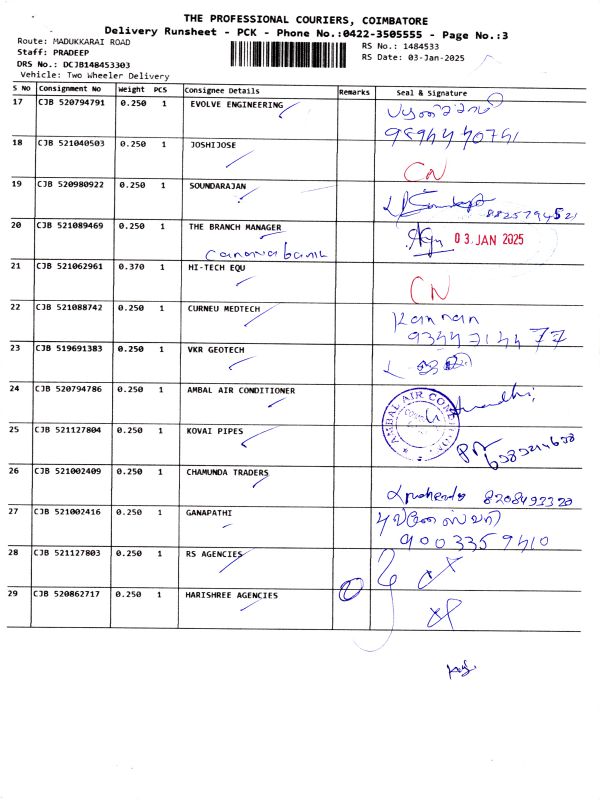 THE PROFESSIONAL COURIERS, COIMBATORE
Delivery Runsheet - PCK - Phone No.:0422-3505555 - Page No.:3
Route: MADUKKARAI ROAD
RS No.: 1484533
Staff: PRADEEP
RS Date: 03-Jan-2025
DRS No.: DCJB148453303
Vehicle: Two Wheeler Delivery
S No Consignment No Weight PCS Consignee Details Remarks Seal & Signature
17 CJB 520794791 0.250 1 EVOLVE ENGINEERING
18 CJB 521040503 0.250 1 JOSHIJOSE
CN
19 CJB 520980922 0.250 1 SOUNDARAJAN
20 CJB 521089469 0.250 1 THE BRANCH MANAGER
03 JAN 2025
canara bank
21 CJB 521062961 0.370 1 HI-TECH EQU
CN
22 CJB 521088742 0.250 1 CURNEU MEDTECH
Kannan
23 CJB 519691383 0.250 1 VKR GEOTECH
24 CJB 520794786 0.250 1 AMBAL AIR CONDITIONER
25 CJB 521127804 0.250 1 KOVAI PIPES
26 CJB 521002409 0.250 1 CHAMUNDA TRADERS
27 CJB 521002416 0.250 1 GANAPATHI
9003359410
28 CJB 521127803 0.250 1 RS AGENCIES
29 CJB 520862717 0.250 1 HARISHREE AGENCIES